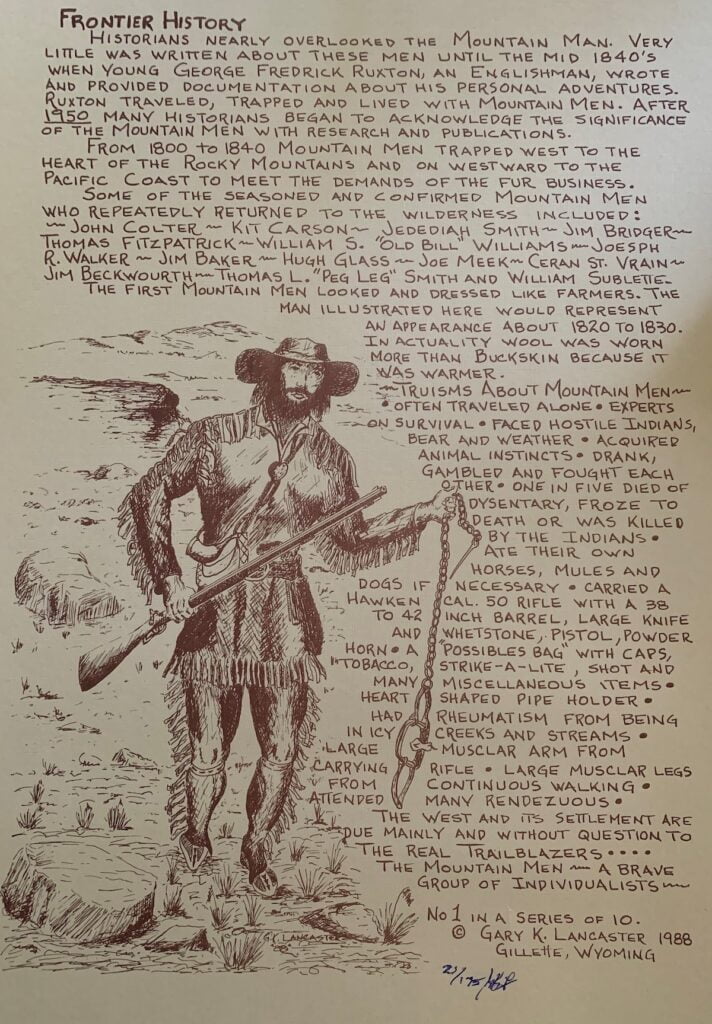 FRONTIER HISTORY
HISTORIANS NEARLY OVERLOOKED THE MOUNTAIN MAN. VERY
LITTLE WAS WRITTEN ABOUT THESE MEN UNTIL THE MID 1840'S
WHEN YOUNG GEORGE FREDRICK RUXTON, AN ENGLISHMAN, WROTE
AND PROVIDED DOCUMENTATION ABOUT HIS PERSONAL ADVENTURES.
RUXTON TRAVELED, TRAPPED AND LIVED WITH MOUNTAIN MEN. AFTER
1950 MANY HISTORIANS BEGAN TO ACKNOWLEDGE THE SIGNIFICANCE
OF THE MOUNTAIN MEN WITH RESEARCH AND PUBLICATIONS.
FROM 1800 TO 1840 MOUNTAIN MEN TRAPPED WEST TO THE
HEART OF THE ROCKY MOUNTAINS AND ON WESTWARD TO THE
PACIFIC COAST TO MEET THE DEMANDS OF THE FUR BUSINESS.
SOME OF THE SEASONED AND CONFIRMED MOUNTAIN MEN
WHO REPEATEDLY RETURNED TO THE WILDERNESS INCLUDED:
~ JOHN COLTER ~ KIT CARSON ~ JEDEDIAH SMITH ~ JIM BRIDGER ~
THOMAS FITZPATRICK ~ WILLIAM S. "OLD BILL" WILLIAMS ~ JOESPH
R. WALKER ~ JIM BAKER ~ HUGH GLASS ~ JOE MEEK ~ CERAN ST. VRAIN ~
JIM BECKWOURTH ~ THOMAS L. "PEG LEG" SMITH AND WILLIAM SUBLETTE.
THE FIRST MOUNTAIN MEN LOOKED AND DRESSED LIKE FARMERS. THE
MAN ILLUSTRATED HERE WOULD REPRESENT
AN APPEARANCE ABOUT 1820 TO 1830.
IN ACTUALITY WOOL WAS WORN
MORE THAN BUCKSKIN BECAUSE IT
WAS WARMER.
~ TRUISMS ABOUT MOUNTAIN MEN ~
• OFTEN TRAVELED ALONE • EXPERTS
ON SURVIVAL • FACED HOSTILE INDIANS,
BEAR AND WEATHER • ACQUIRED
ANIMAL INSTINCTS • DRANK,
GAMBLED AND FOUGHT EACH
OTHER • ONE IN FIVE DIED OF
DYSENTARY, FROZE TO
DEATH OR WAS KILLED
BY THE INDIANS •
ATE THEIR OWN
HORSES, MULES AND
DOGS IF NECESSARY • CARRIED A
HAWKEN CAL. 50 RIFLE WITH A 38
TO 42 INCH BARREL, LARGE KNIFE
AND WHETSTONE, PISTOL, POWDER
HORN • A "POSSIBLES BAG" WITH CAPS,
TOBACCO, STRIKE-A-LITE, SHOT AND
MANY MISCELLANEOUS ITEMS •
HEART SHAPED PIPE HOLDER •
HAD RHEUMATISM FROM BEING
IN ICY CREEKS AND STREAMS •
LARGE MUSCLAR ARM FROM
CARRYING RIFLE • LARGE MUSCLAR LEGS
FROM CONTINUOUS WALKING •
ATTENDED MANY RENDEZUOUS •
THE WEST AND ITS SETTLEMENT ARE
DUE MAINLY AND WITHOUT QUESTION TO
THE REAL TRAILBLAZERS ••••
THE MOUNTAIN MEN ~ A BRAVE
GROUP OF INDIVIDUALISTS ~
NO 1 IN A SERIES OF 10.
© GARY K. LANCASTER 1988
GILLETTE, WYOMING
G.K. LANCASTER
'88